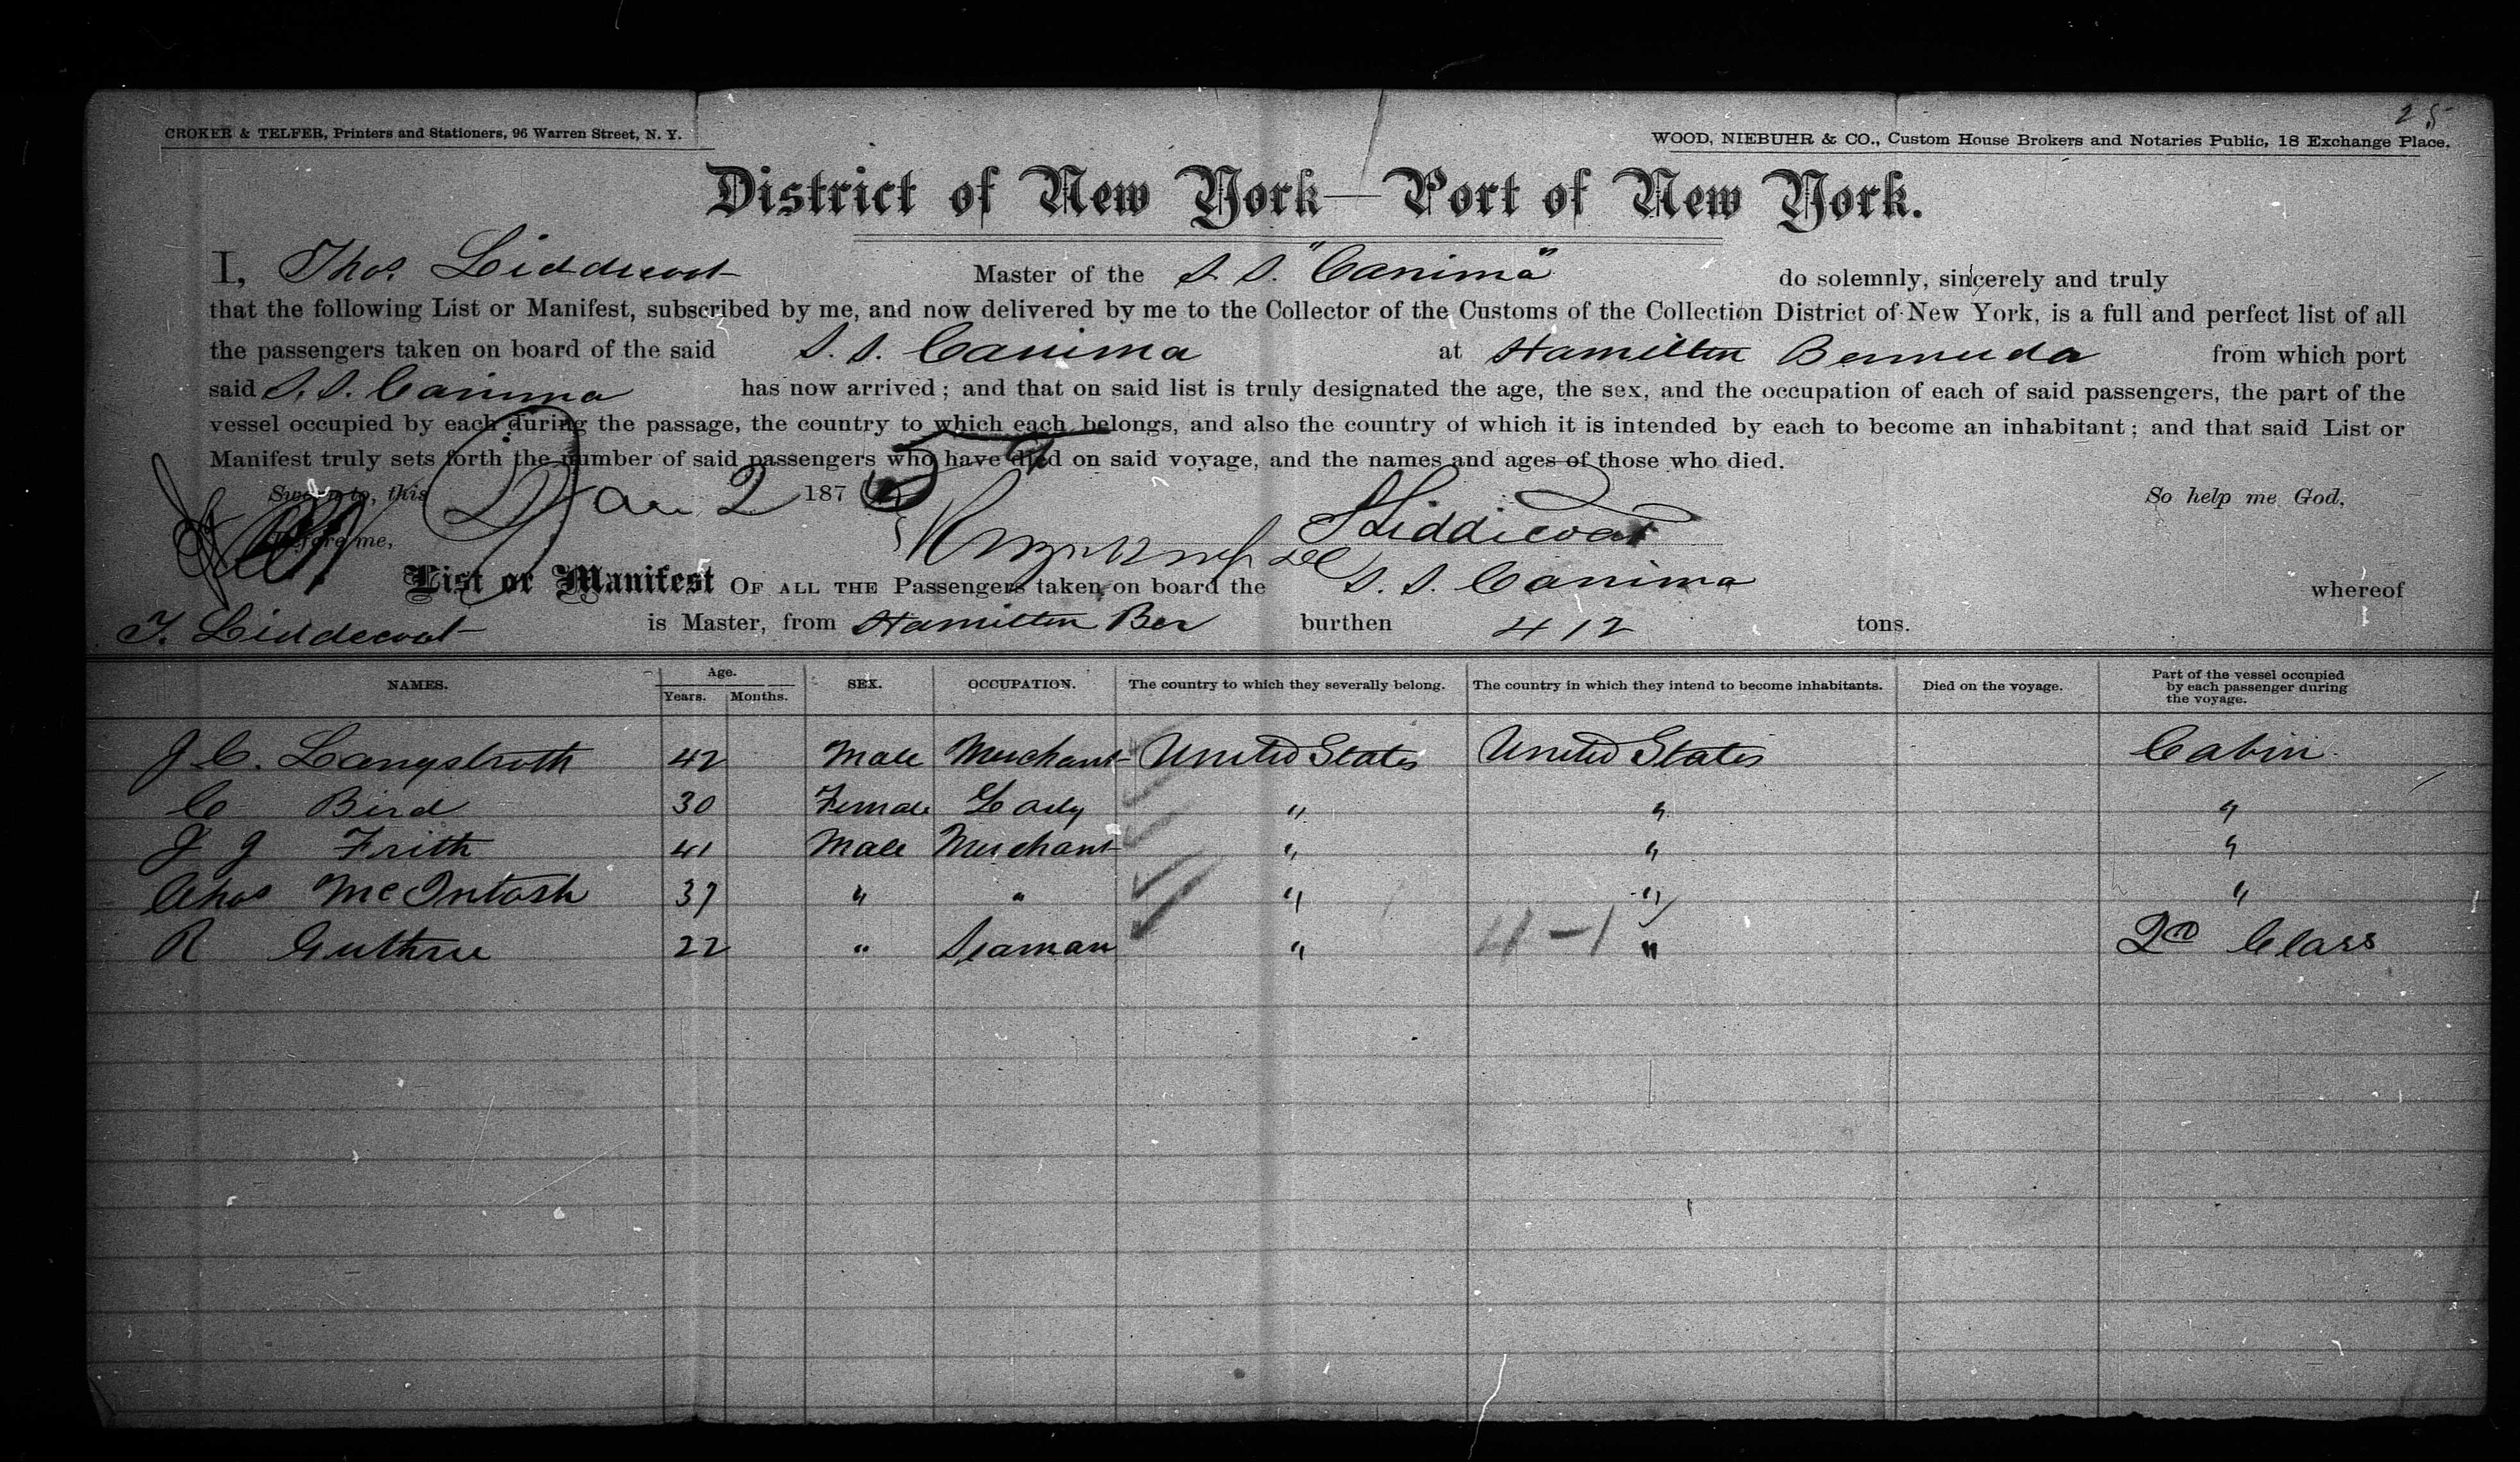 25
CROKER & TELFER, Printers and Stationers, 96 Warren Street, N. Y.
WOOD, NIEBUHR & CO., Custom House Brokers and Notaries Public, 18 Exchange Place.
District of New York—Port of New York.
I, Thos. Liddicoat Master of the S. S. "Canima" do solemnly, sincerely and truly
that the following List or Manifest, subscribed by me, and now delivered by me to the Collector of the Customs of the Collection District of New York, is a full and perfect list of all
the passengers taken on board of the said S. S. Canima at Hamilton Bermuda from which port
said S. S. Canima has now arrived; and that on said list is truly designated the age, the sex, and the occupation of each of said passengers, the part of the
vessel occupied by each during the passage, the country to which each belongs, and also the country of which it is intended by each to become an inhabitant; and that said List or
Manifest truly sets forth the number of said passengers who have died on said voyage, and the names and ages of those who died.
Sworn to, this Jan 2 1875 So help me God,
Before me, Liddicoat
List or Manifest OF ALL THE Passengers taken on board the S. S. Canima whereof
T. Liddecoat is Master, from Hamilton Ber burthen 412 tons.
NAMES. Age. Years. Months. SEX. OCCUPATION. The country to which they severally belong. The country in which they intend to become inhabitants. Died on the voyage. Part of the vessel occupied by each passenger during the voyage.
J C. Langstroth 42 Male Merchant United States United States Cabin
C Bird 30 Female Lady " " "
J J Frith 41 Male Merchant " " "
Chas McIntosh 37 " " " " "
R Guthrie 22 " Seaman " 4-1 " 2nd Class